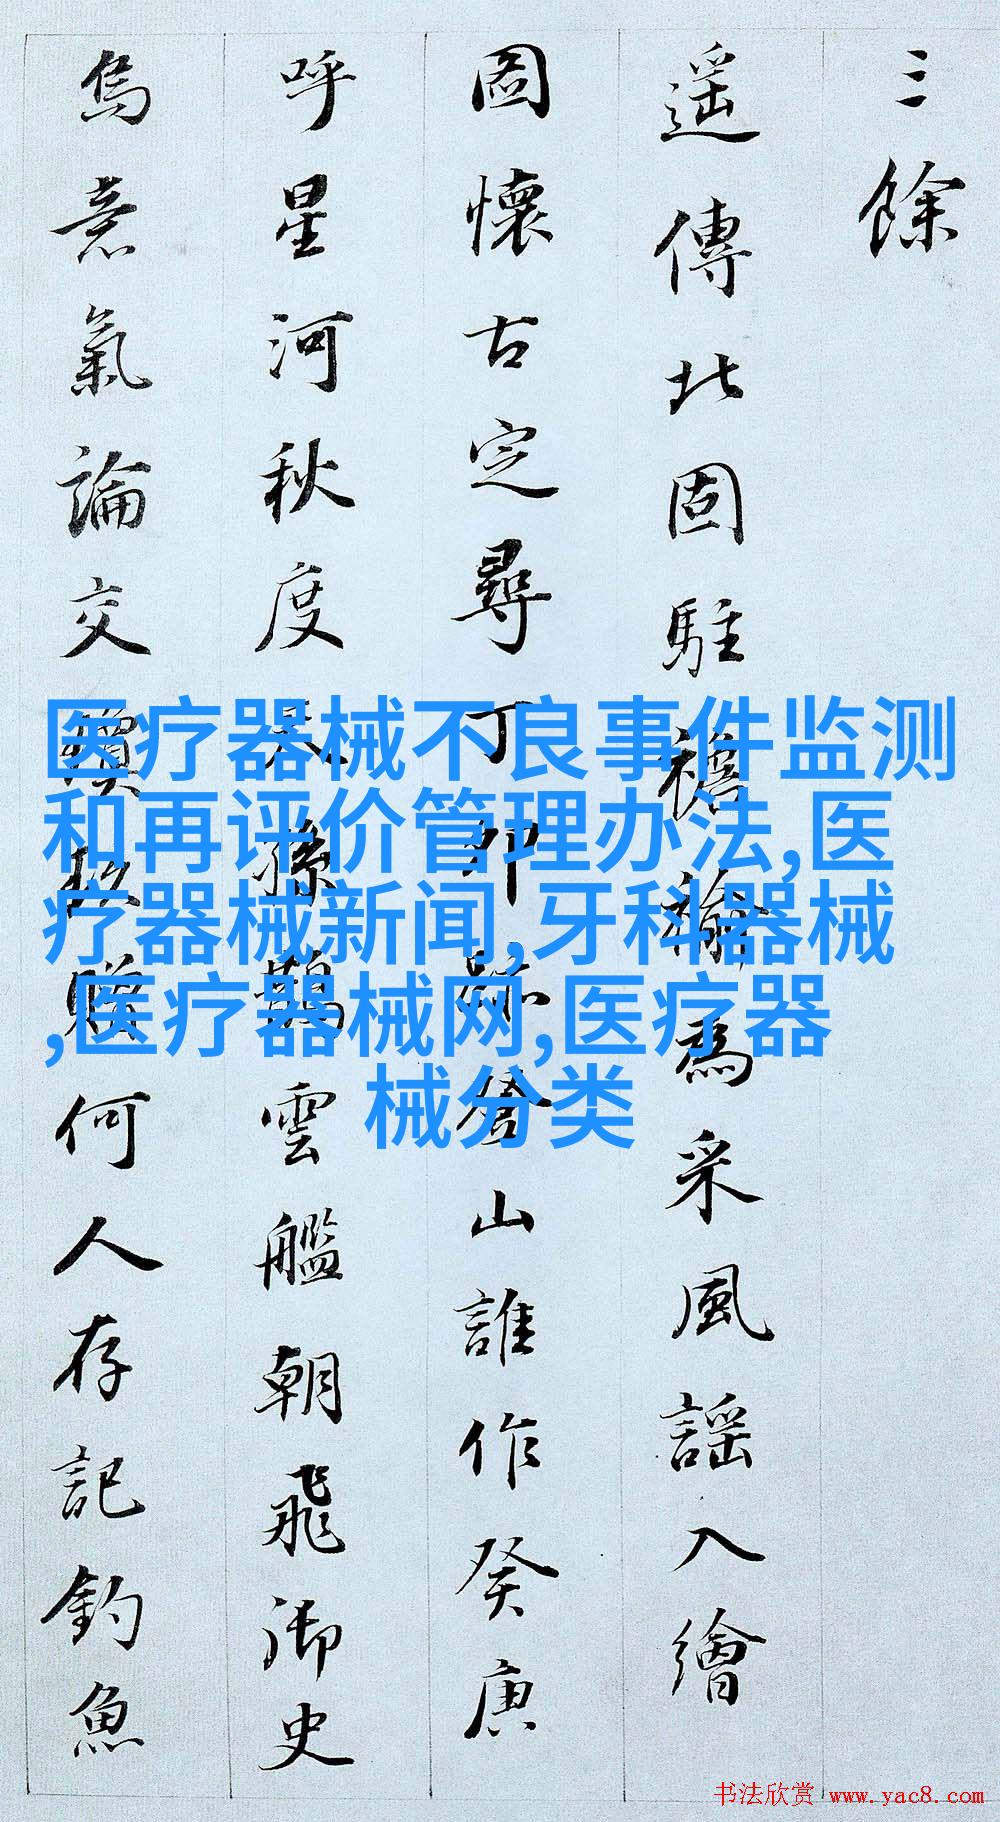 三餘
遥傳北固駐襜褕為采風謡入繪
圖懷古定尋丁卯山誰作癸庚
呼星河秋度天孫鵲雲艦朝飛御史
烏意氣論交何人存記釣魚
医疗器械不良事件监测
和再评价管理办法,医
疗器械新闻,牙科器械
,医疗器械网,医疗器
械分类
书法欣赏 www.yac8.com